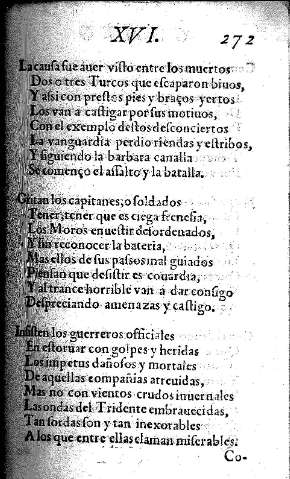 XVI. 272
La causa fue auer visto entre los muertos
Dos o tres Turcos que escaparon biuos,
Y assi con prestos pies y braços yertos
Los van a castigar por sus motiuos,
Con el exemplo destos desconciertos
La vanguardia perdio riendas y estribos,
Y siguiendo la barbara canalla
Se començo el assalto y la batalla.
Gritan los capitanes, o soldados
Tener, tener que es ciega frenesia,
Los Moros en uestir desordenados,
Y sin reconocer la bateria,
Mas ellos de sus passos mal guiados
Piensan que desistir es couardia,
Y al trance horrible van a dar consigo
Despreciando amenazas y castigo.
Insisten los guerreros officiales
En estoruar con golpes y heridas
Los impetus dañosos y mortales
De aquellas compañias atreuidas,
Mas no con vientos crudos inuernales
Las ondas del Tridente embrauecidas,
Tan sordas son y tan inexorables
A los que entre ellas claman miserables.
Co-